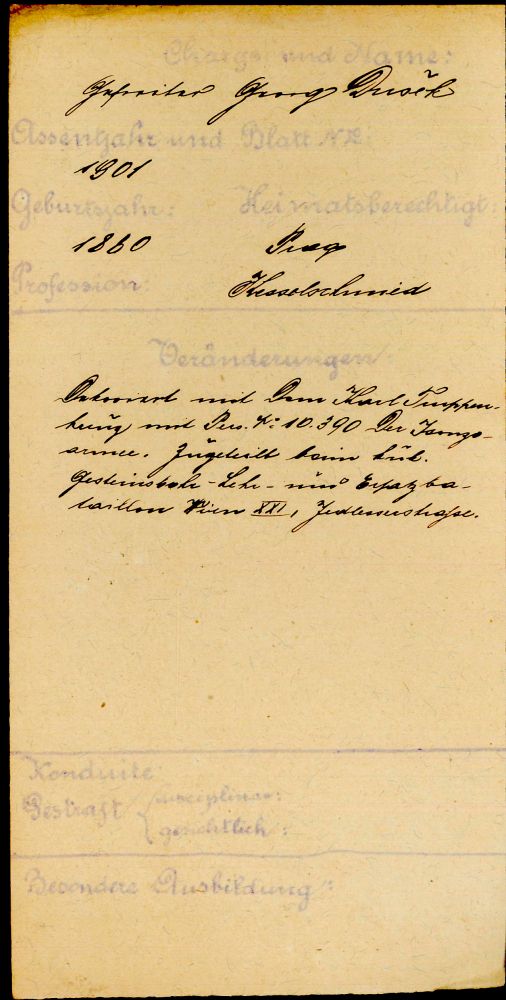 Charge und Name:
Gefreiter Georg Dusěk
Assentjahr und Blatt N<u>r</u>:
1901
Geburtsjahr: Heimatsberechtigt:
1860 Prag
Profession: Kesselschmied
Veränderungen:
Dekoriert mit dem Karl Truppen-
kreuz mit Res. N<u>o</u> 10.390 der Isonzo-
armee. Zugeteilt beim kuk.
Gesteinsbohr-Lehr- und Ersatzba-
taillon Wien XXI, Jedleseerstrasse.
Konduite
Bestraft disciplinar:
gerichtlich:
Besondere Ausbildung: